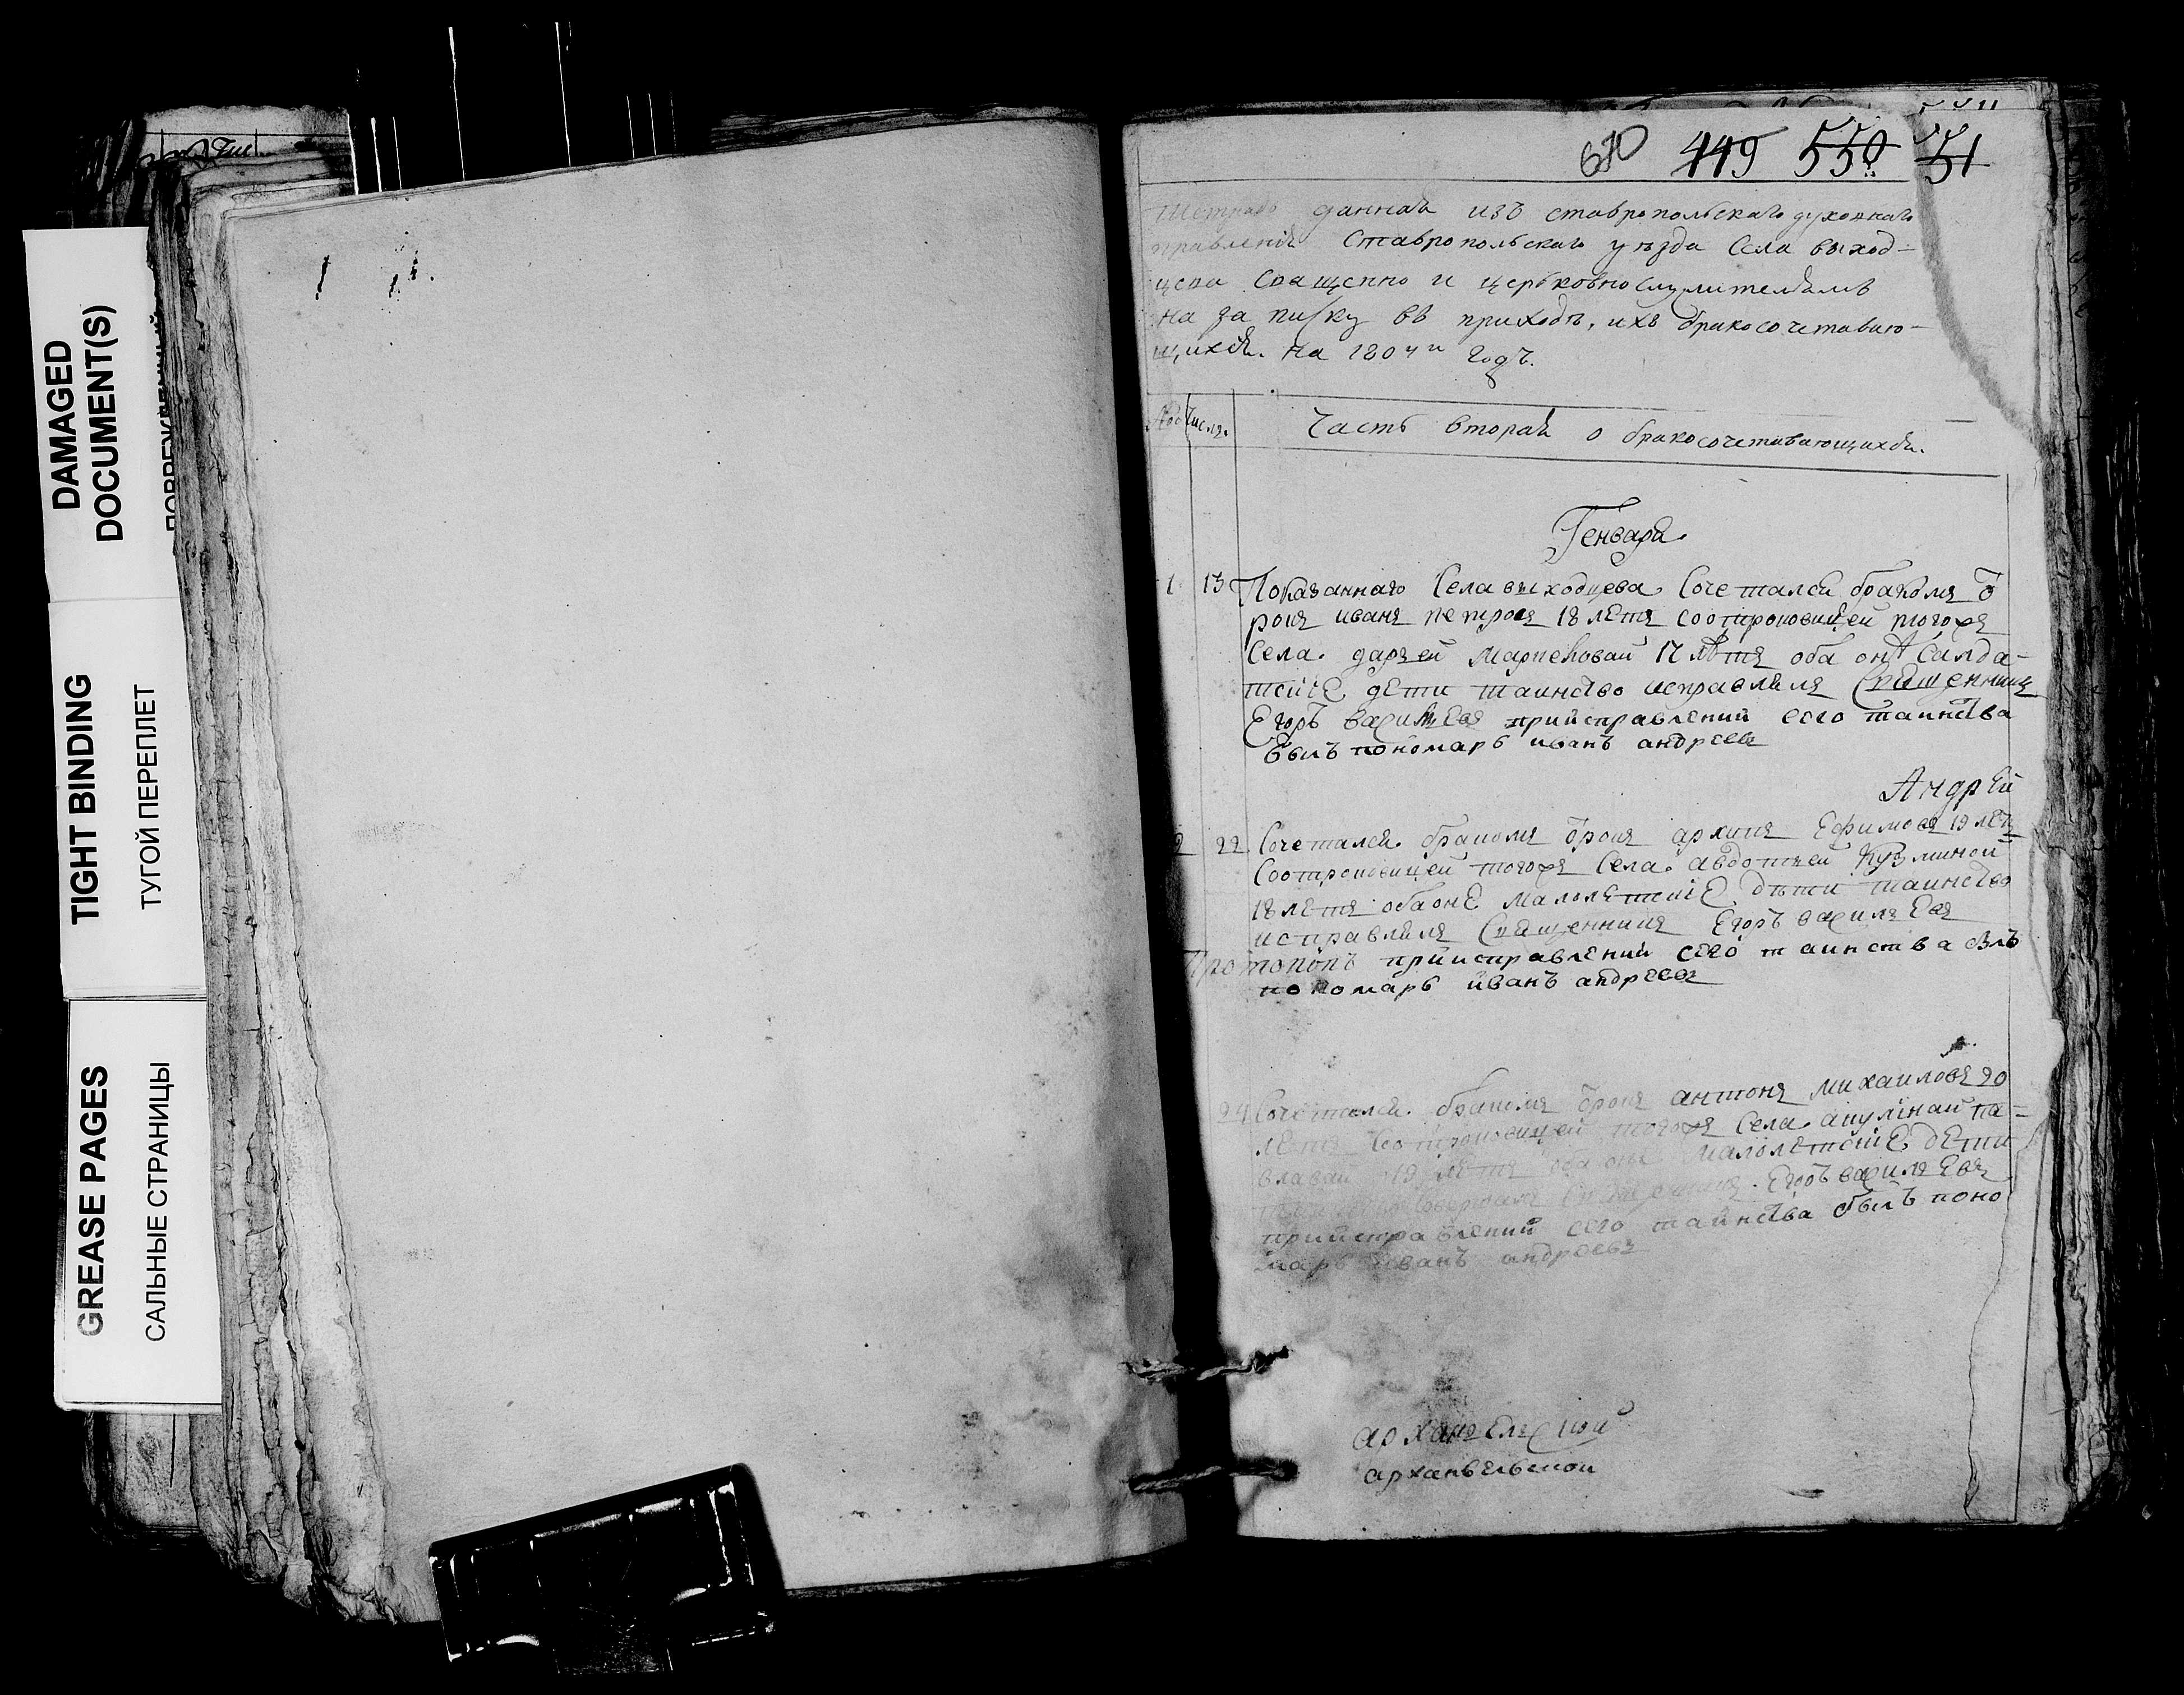 DAMAGED
DOCUMENT(S)
TIGHT BINDING
ТУГОЙ ПЕРЕПЛЕТ
GREASE PAGES
САЛЬНЫЕ СТРАНИЦЫ
449 550 551
Тетрадь данная изъ ставропольскаго духовнаго
правления Ставропольскаго уезда Села выход-
цева Священно и церковнослужителямъ
на записку въ приходѣ, ихъ бракосочетаваю-
щихся. На 1804й Годъ.
Числа.
Часть вторая о бракосочетавающихся.
Генваря
1 13 Показаннаго Села выходцева Сочетался бракомъ
иванъ петровъ 18 летъ соотроковицей тогожъ
Села дарьей 17 летъ оба онѣ Салда-
тскiе дети таинство исправлялъ Священникъ
Егоръ васильевъ прииправлении сего таинства
былъ пономарь иванъ андреевъ
Андрѣй
2 22 Сочетался бракомъ отрокъ архипъ Ефимовъ 19 летъ
Соотроковицей тогожъ Села авдотьей Кузминой
18 летъ обаонѣ малолетскiе дѣти таинство
исправлялъ Священникъ Егоръ васильевъ
Протопопъ приисправлении сего таинства былъ
пономарь иванъ андреевъ
24 Сочетался бракомъ отрокъ антонъ михаиловъ 20
летъ Соотроковицей тогожъ Села акулиной па-
влавай 19 летъ оба онѣ малолетскiе дети
Священникъ Егоръ васильевъ
приисправлении сего таинства былъ поно
марь иванъ андреевъ
архангельской
архангельской